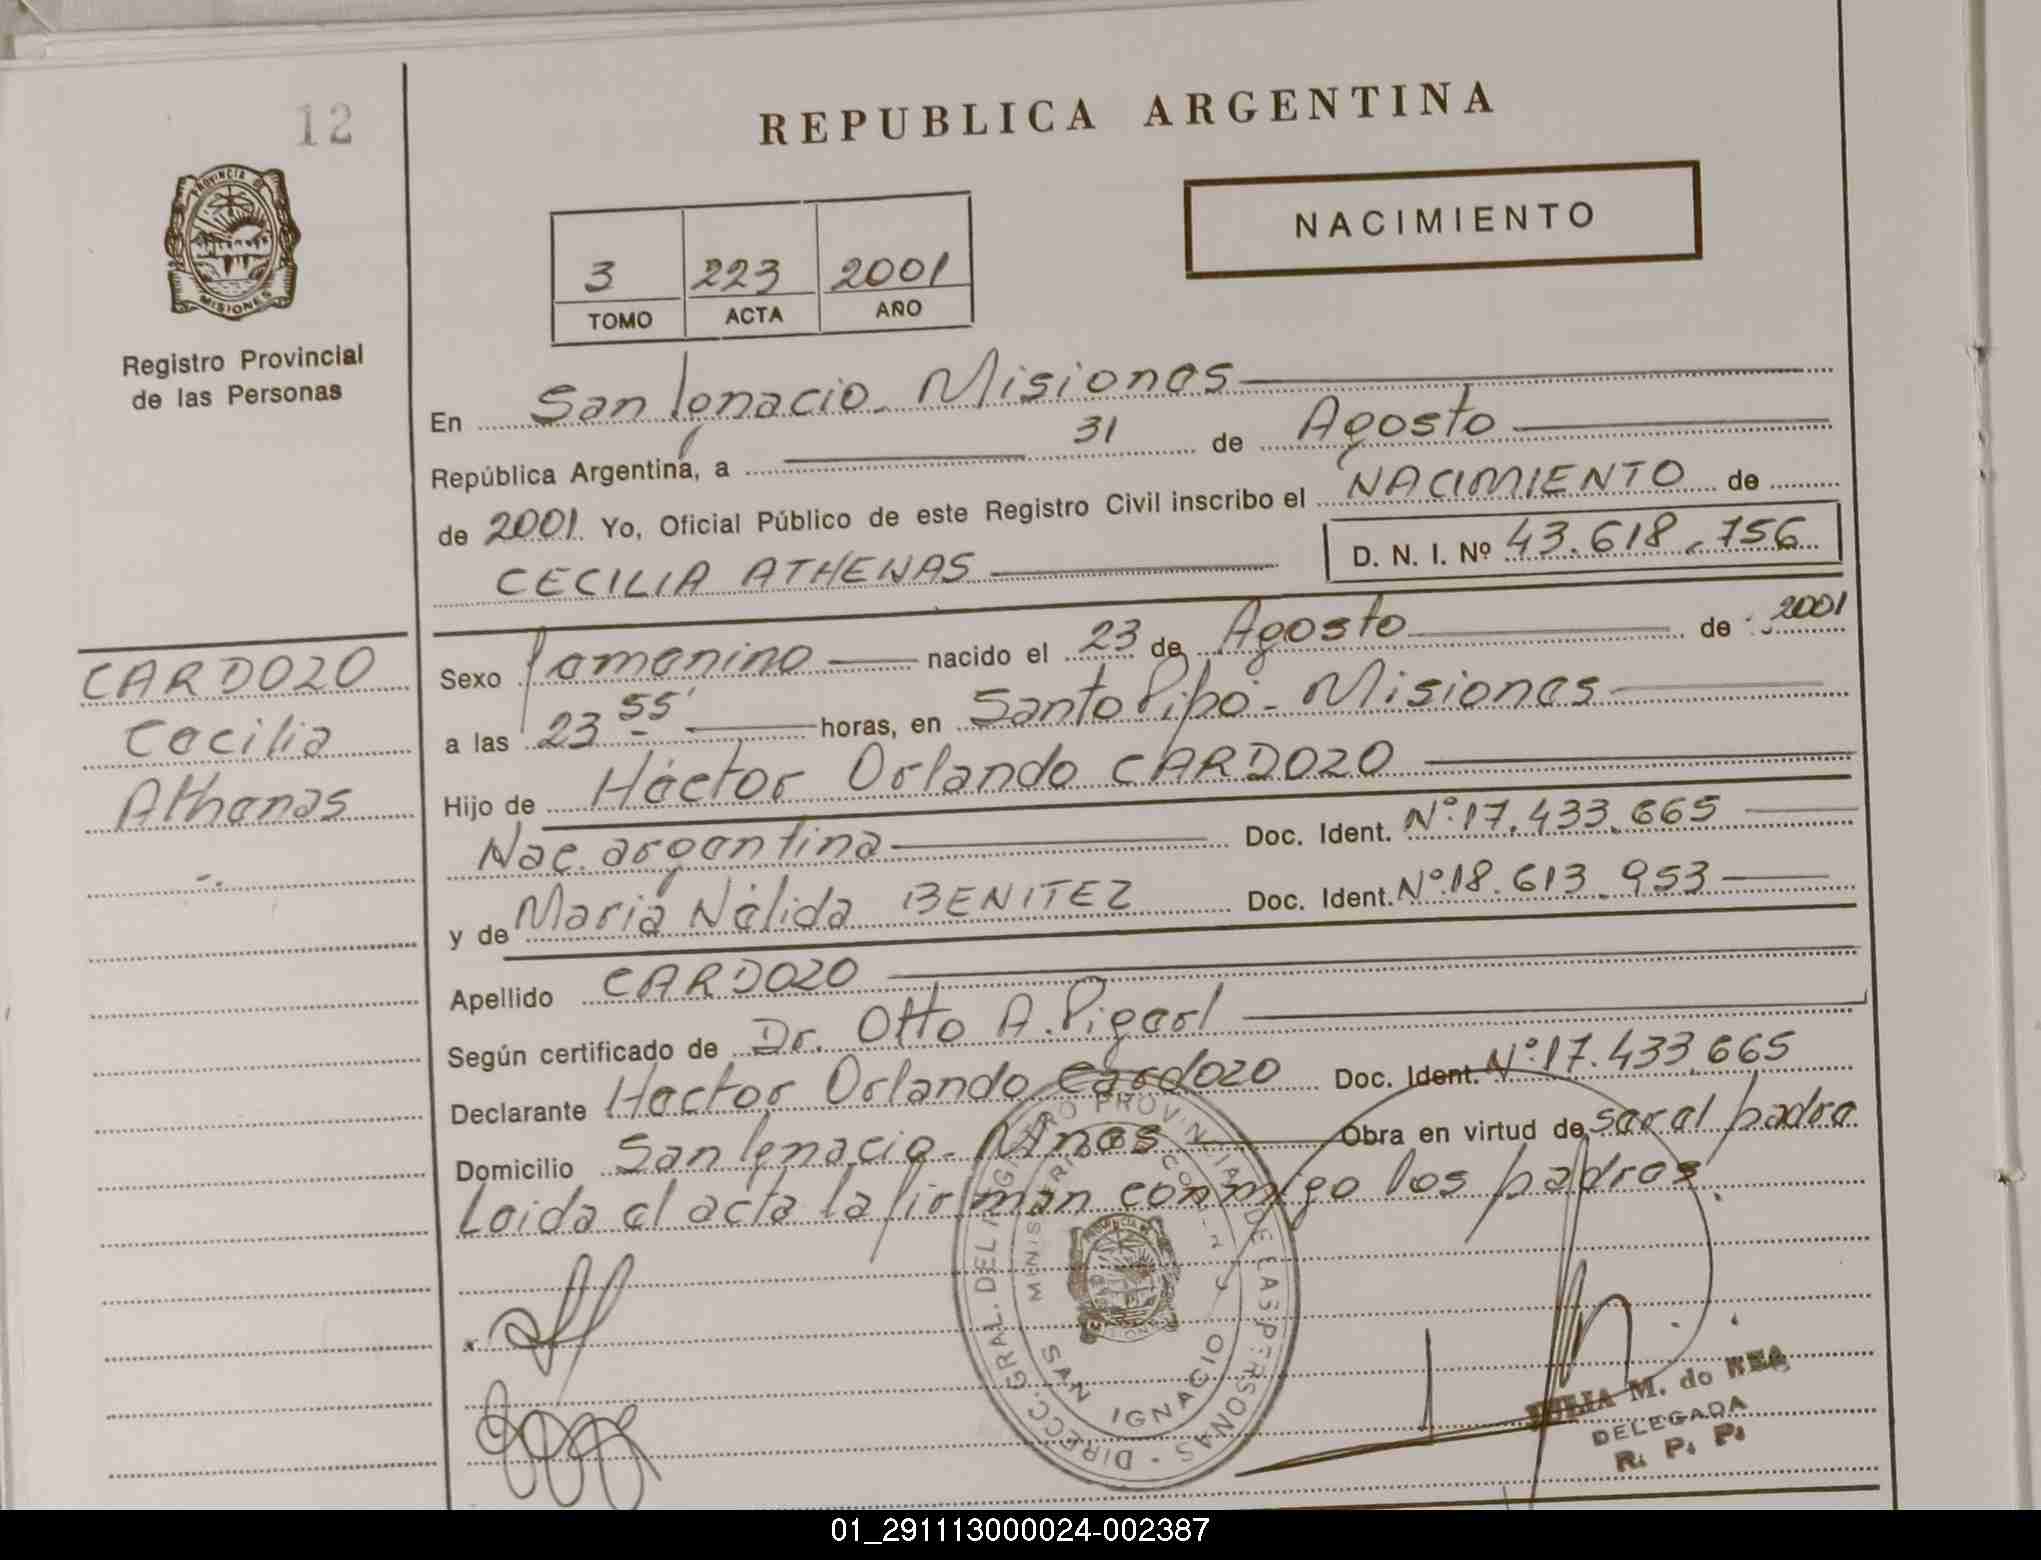 12
REPUBLICA ARGENTINA
PROVINCIA DE
MISIONES
NACIMIENTO
3 223 2001
TOMO ACTA AÑO
Registro Provincial
de las Personas
En San Ignacio - Misiones
República Argentina, a 31 de Agosto
de 2001 Yo, Oficial Público de este Registro Civil inscribo el NACIMIENTO de
CECILIA ATHENAS D. N. I. Nº 43.618.756
CARDOZO
Cecilia
Athenas
Sexo femenino nacido el 23 de Agosto de 2001
a las 23 55' horas, en Santo Pipó - Misiones
Hijo de Héctor Orlando CARDOZO
Nac. argentina Doc. Ident. Nº 17.433.665
y de María Nélida BENITEZ Doc. Ident. Nº 18.613.953
Apellido CARDOZO
Según certificado de Dr. Otto A.
Declarante Hector Orlando Cardozo Doc. Ident. Nº 17.433.665
Domicilio San Ignacio - Mnes Obra en virtud de ser el padre
Leida el acta la firman conmigo los padres.
DIRECC. GRAL. DEL REGISTRO PROVINCIAL DE LAS PERSONAS
SAN IGNACIO
JULIA M. do REA
DELEGADA
R. P. P.
01_291113000024-002387